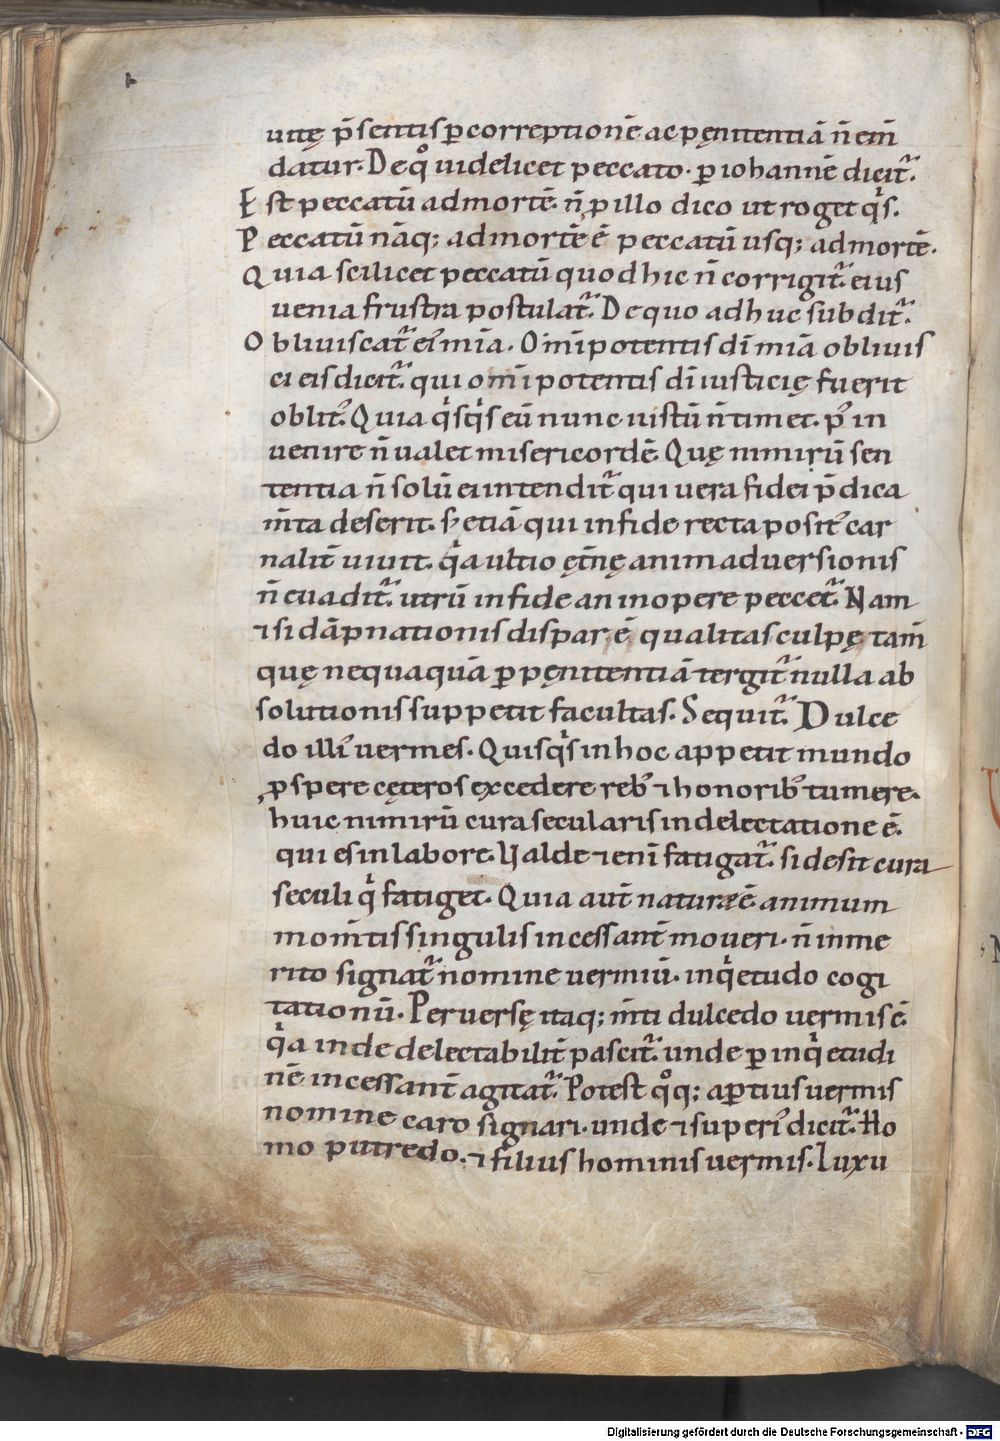 uitę p̄sentis ꝑ correptionē ac pęnitentiā n̄ em̄
datur. De qͦ uidelicet peccato. ꝑ iohannē dicit᷑.
Est peccatū ad mortē. n̄ ꝓ illo dico ut roget qͥs.
Peccatū nāq; ad mortē ē peccatū usq; ad mortē.
Quia scilicet peccatū quod hic n̄ corrigit᷑. eius
uenia frustra postulat᷑. De quo adhuc subdit᷑.
Obliuiscat᷑ ei᷒ mīa. Omīpotentis dī mīa obliuis
ci eis dicit᷑. qui omīpotentis dī iusticię fuerit
oblit᷒. Quia qͥsqͥs eū nunc iustū n̄ timet. p᷒ in
uenire n̄ ualet misericordē. Quę nimirū sen
tentia n̄ solū ei intendit᷑ qui uera fidei p̄dica
m̄ta deserit. s; etiā qui in fide recta posit᷒ car
nalit̄ uiuit. qͥa ultio ęt̄nę animaduersionis
n̄ euadit᷑. utrū in fide an in opere peccet᷑. Nam
⁊ si dāpnationis dispar ē qualitas culpę. tam̄
quę nequaquā ꝑ pęnitentiā tergit᷑ nulla ab
solutionis suppetit facultas. Sequit᷑. Dulce
do illi᷒ uermes. Quisqͥs in hoc appetit mundo
ꝓspere cęteros excedere reb᷒ ⁊ honorib᷒ tumere.
huic nimirū cura secularis in delectatione ē.
qui es in labore. Ualde ⁊ enī fatigat᷑. si desit cura
seculi qͥ fatiget. Quia aut̄ naturæ ē animum
mom̄tis singulis incessant̄ moueri. n̄ inme
rito signat᷑ nomine uermiū. inqͥetudo cogi
tationū. Peruersę itaq; m̄ti dulcedo uermis ē.
qͥa inde delectabilit̄ pascit᷑. unde ꝑ inqͥetudi
nē incessant̄ agitat᷑. Potest qͦq; aꝑtius uermis
nomine caro signari. unde ⁊ superi᷒ dicit᷑. Ho
mo putredo. ⁊ filius hominis uermis. Luxu
Digitalisierung gefördert durch die Deutsche Forschungsgemeinschaft - DFG